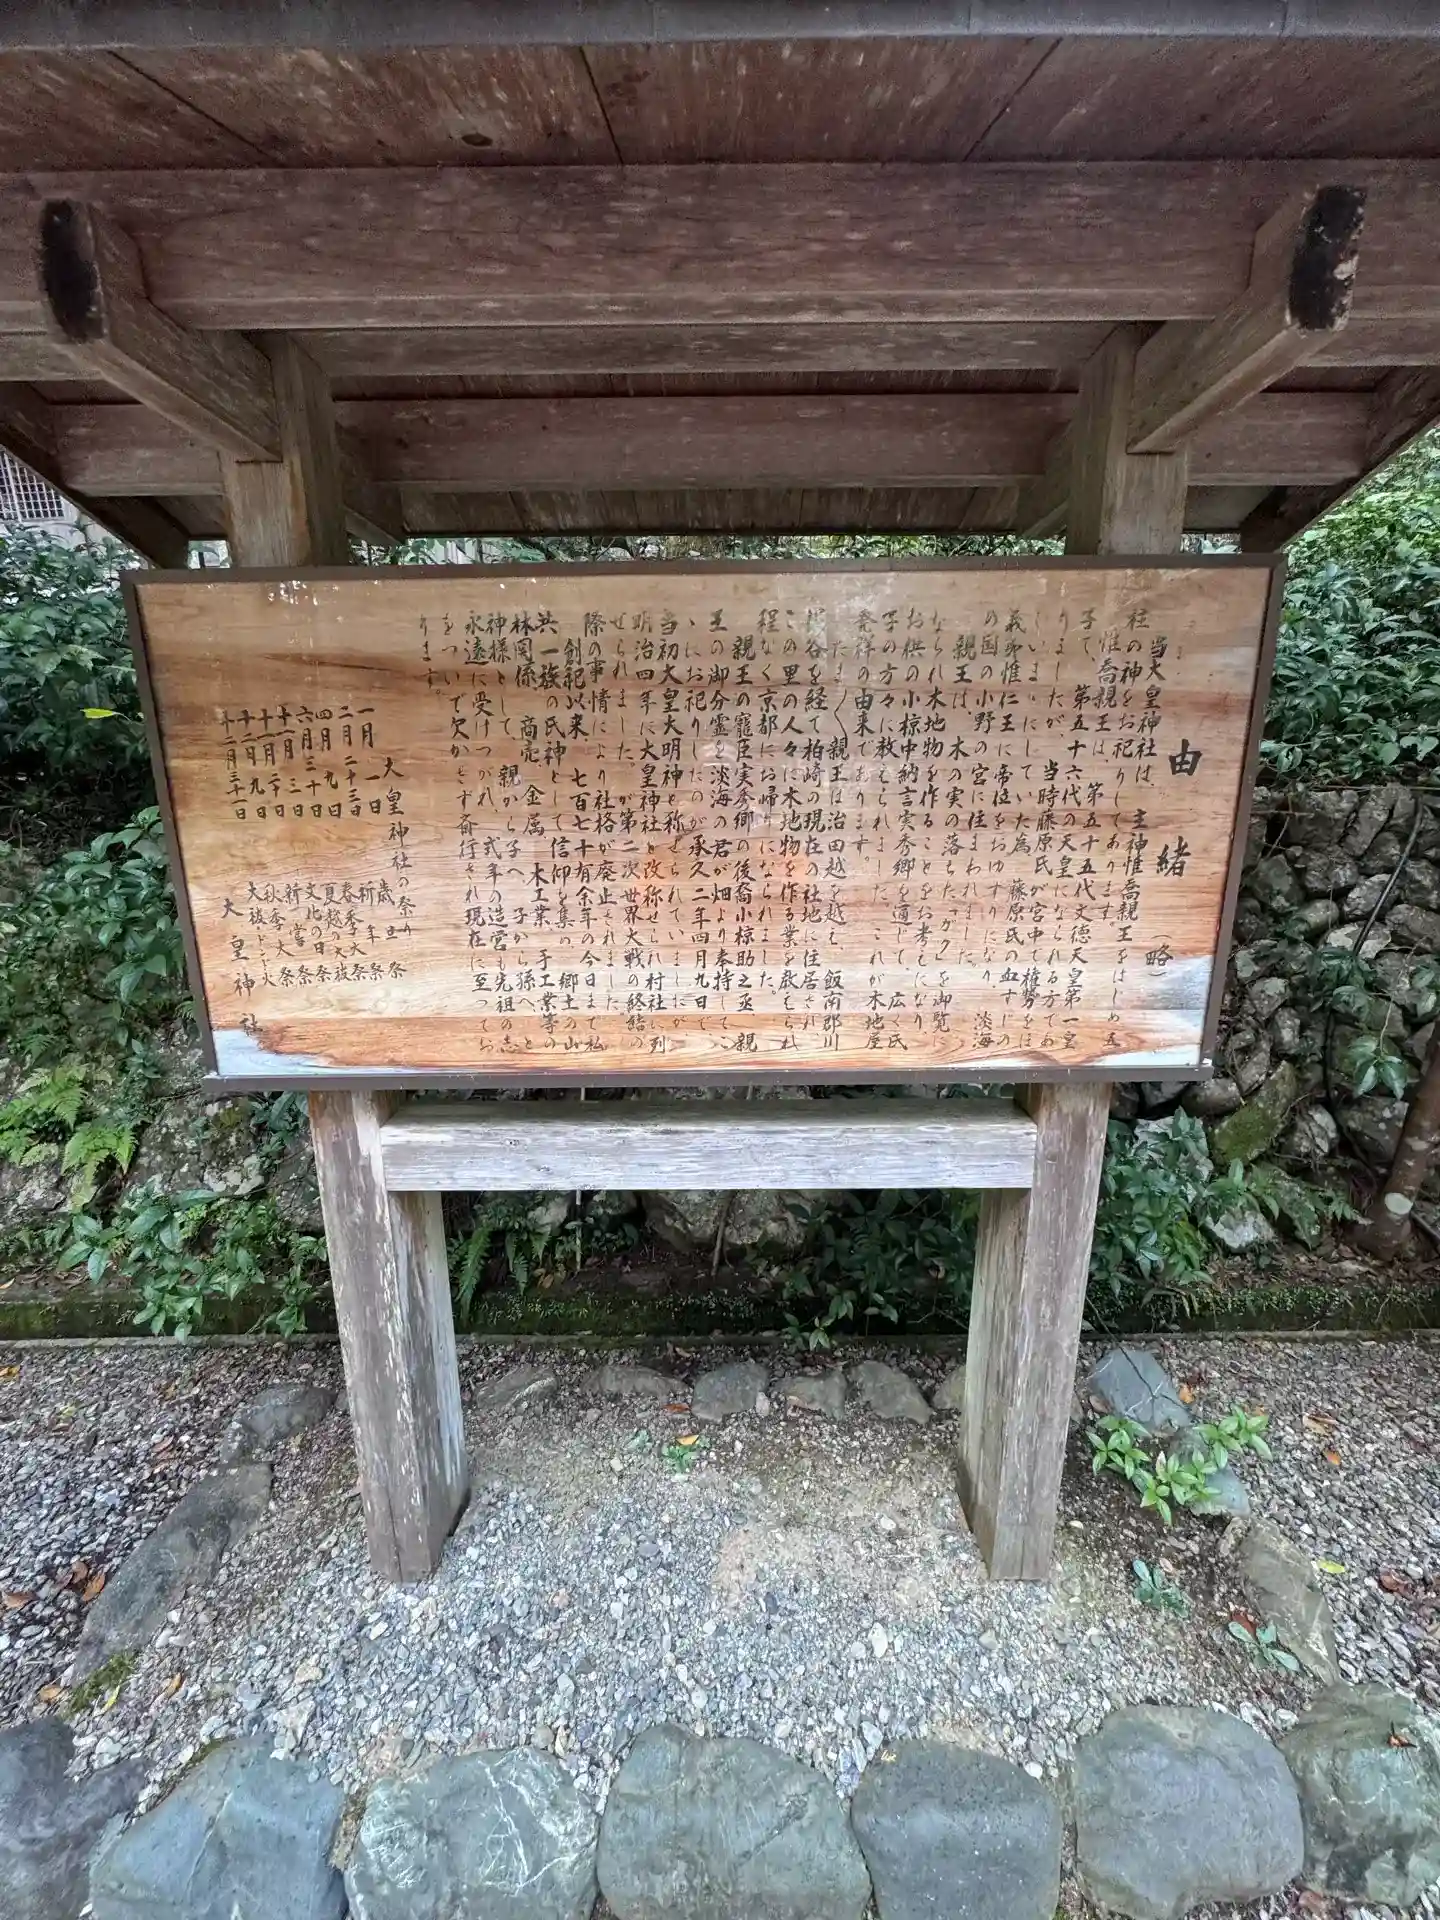 由緒（略）
当大皇神社は、主神惟喬親王をはじめ五
柱の神をお祀りしてあります。
惟喬親王は、第五十五代文徳天皇第一皇
子で、第五十六代の天皇になられる方であ
りましたが、当時藤原氏が宮中で権勢をほ
しいまいにしていた為、藤原氏の血すじの
義弟惟仁王に帝位をおゆずりになり、淡海
の国の小野の宮に住まわれました。
親王は、木の実の落ちた「ガク」を御覧に
なられ木地物を作ることをお考えになり
お供の小椋中納言実秀郷を通じて、広く氏
子の方々に教えられました。これが木地屋
発祥の由来であります。
たま〱親王は治田越を越え、飯南郡川
俣谷を経て柏崎の現在の社地に住居され
この里の人々に木地物を作る業を教えられ
程なく京都にお帰りになられました。
親王の寵臣実秀郷の後裔小椋助之丞、親
王の御分霊を淡海の君が畑より奉持してこ
ゝにお祀りしたのが承久二年四月九日で、
当初大皇大明神と称せられていましたが
明治四年に大皇神社と改称せられ村社に列
せられました。が第二次世界大戦の終結の
際の事情により社格が廃止されました
創祀以来、七百七十有余年の今日まで私
共一族の氏神として信仰を集め、郷土の山
林関係、商売、金属、木工業、手工業等の
神様として、親から子へ、子から孫へ、と
永遠に受けつがれ、式年の造営も先祖の志
をついで欠かせず斎行され現在に至ってお
ります。
大皇神社の祭り
一月一日 歳旦祭
二月二十三日 祈年祭
四月九日 春季大祭
六月三十日 夏越の大祓
十一月三日 文化の日祭
十一月二十日 新嘗祭
十二月九日 秋季大祭
十二月三十一日 大祓とどんど火
大皇神社